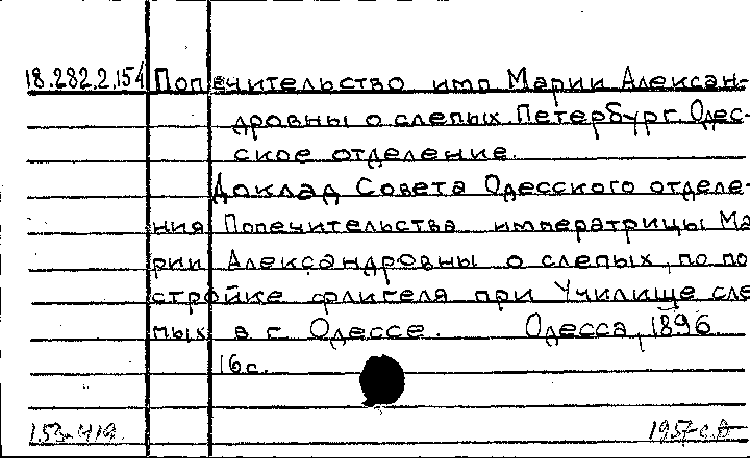 18.282.2.154 Попечительство имп Марии Алексан-
дровны о слепых. Петербург. Одес-
ское отделение.
Доклад Совета Одесского отделе-
ния Попечительства императрицы Ма
рии Александровны о слепых, по по
стройке флигеля при Училище сле
пых в г. Одессе. Одесса, 1896
16с.
153-419.